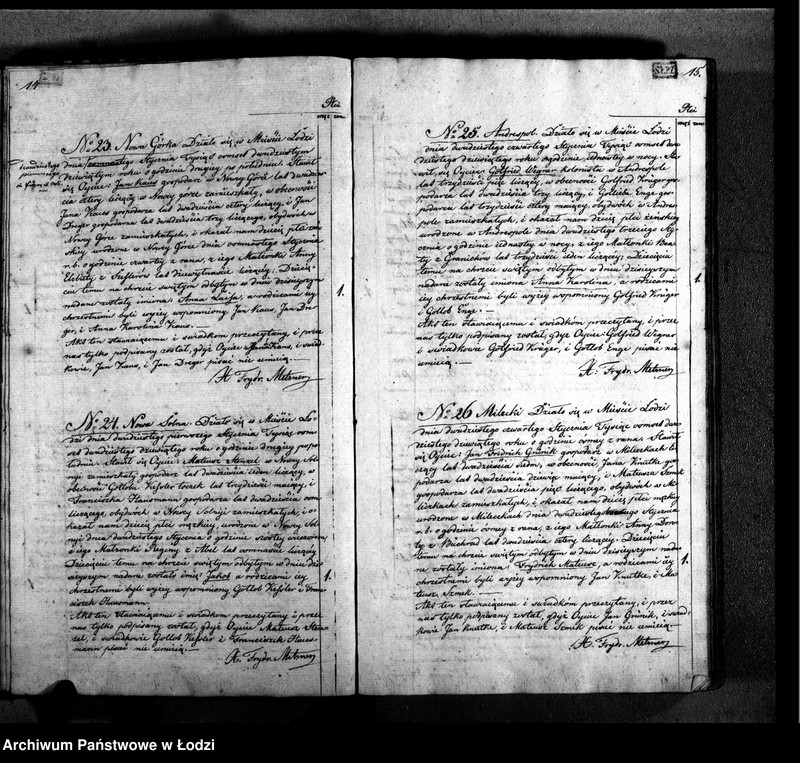 14
Płci
męz. żen.
№ 23 Nowa Górka Działo się w Mieście Łodzi
dnia Stycznia Tysiąc ośmset dwudziestym
dziewiątym roku o godzinie drugiey po południu. Stawił
się Oyciec: Jan Kaus gospodarz w Nowey Górce lat dwadzieścia
cztery liczący w Nowey górce zamieszkały, w obecności
Jana Kraus gospodarza lat dwadzieścia cztery liczący, i Jan
Dreger gospodarza lat dwadzieścia trzy liczącego, obydwóch w
Nowey Górce zamieszkałych, i okazał nam dziecię płci żeń-
skiey urodzone w Nowey Górce dnia ośmnastego Stycznia
r. b. o godzinie czwartey z rana, z iego Małżonki Anny
Elżbiety z lat dziewiętnaście liczącey; Dziecię-
ciu temu na chrzcie świętym odbytym w dniu dzisieyszym
nadane zostały imiona: Anna Luisa, a rodzicami
chrzestnemi byli wyżey wspomniony Jan Kaus, Jan Dre-
ger, i Anna Karolina Kaus.
Akt ten stawaiącemu i świadkom przeczytany, i przez
nas tylko podpisany został, gdyż Oyciec Jan Kaus, i świad-
kowie, Jan Kaus, i Jan Dreger pisać nie umieią.
X. Frydr. Metzner
1.
№ 24. Nowa Solna. Działo się w Mieście Ło-
dzi dnia dwudziestego pierwszego Stycznia Tysiąc ośm-
set dwudziestego dziewiątego roku o godzinie drugiey popo-
łudniu. Stawił się Oyciec: Mateusz w Nowey Sol-
nyi zamieszkały gospodarz lat dwadzieścia ieden liczący, w
obecności Gotlob Kessler lat trzydzieści maiący, i
Franciszka Hausmann gospodarza lat dwadzieścia ośm
liczącego, obydwóch w Nowey Solnyi zamieszkałych, i o-
kazał nam dziecię płci męzkiey, urodzone w Nowey Sol-
nyi dnia dwudziestego Stycznia o godzinie szóstey wieczorem,
z iego Małżonki Reginy z Abel lat ośmnaście liczącey
Dziecięciu temu na chrzcie świętym odbytym w dniu dzi-
sieyszym nadane zostało imię: Jakob a rodzicami
chrzestnemi byli wyżey wspomniony Gotlob Kessler i Fran-
ciszek Hausmann.
Akt ten stawaiącemu i świadkom przeczytany i przez
nas tylko podpisany został, gdyż Oyciec Mateusz
i świadkowie Gotlob Kessler i Franciszek Haus-
mann pisać nie umieią.
X. Frydr. Metzner
1.
15.
Płci
męz. żen.
№ 25. Andrespol. Działo się w Mieście Łodzi
dnia dwudziestego czwartego Stycznia Tysiąc ośmset dwu-
dziestego dziewiątego roku o godzinie iedenastey w nocy. Sta-
wił się Oyciec Gotfried Wegner kolonista w Andrespolu
lat trzydzieści pięć liczący, w obecności Gotfried Krüger go-
spodarza lat dwadzieścia trzy liczący, i Gotlieba Enge gos-
podarza lat trzydzieści cztery maiący, obydwóch w Andres-
polu zamieszkałych, i okazał nam dziecię płci żeńskiey
urodzone w Andrespolu dnia dwudziestego trzeciego Sty-
cznia o godzinie iedenastey w nocy, z iego Małżonki Bea-
ty z lat trzydzieści ieden liczącey; Dziecięciu
temu na chrzcie świętym odbytym w dniu dzisieyszym
nadane zostały imiona Anna Karolina, a rodzicami
chrzestnemi byli wyżey wspomniony Gotfried Krüger
i Gotlob Enge.
Akt ten stawaiącemu i świadkom przeczytany, i przez
nas tylko podpisany został, gdyż Oyciec Gotfried Wegner
i świadkowie Gotfried Krüger, i Gotlob Enge pisać nie
umieią.
X. Frydr. Metzner
1.
№ 26 Mileszki Działo się w Mieście Łodzi
dnia dwudziestego czwartego Stycznia Tysiąc ośmset dwu-
dziestego dziewiątego roku o godzinie ósmey z rana. Stawił
się Oyciec: Jan Fridrich Grünik gospodarz w Mileszkach li-
czący lat dwadzieścia siedm, w obecności, Jana Knutke go-
spodarza lat dwadzieścia dziewięć maiący, i Mateusza Semk
gospodarza lat dwadzieścia pięć liczącego, obydwóch w Mi-
leszkach zamieszkałych, i okazał nam dziecię płci męzkiey
urodzone w Mileszkach dnia dwudziestego Stycznia
r. b. o godzinie ósmey z rana, z iego Małżonki Anny Doro-
ty z lat dwadzieścia cztery liczącey. Dziecięciu
temu na chrzcie świętym odbytym w dniu dzisieyszym nada-
ne zostały imiona: Frydrich Mateusz, a rodzicami
chrzestnemi byli wyżey wspomniony Jan Knutke, i Ma-
teusz Semk.
Akt ten stawaiącemu i świadkom przeczytany, i przez
nas tylko podpisany został, gdyż Oyciec Jan Grünik, i świad-
kowie Jan Knutke, i Mateusz Semk pisać nie umieią.
X. Frydr. Metzner
1.
Archiwum Państwowe w Łodzi